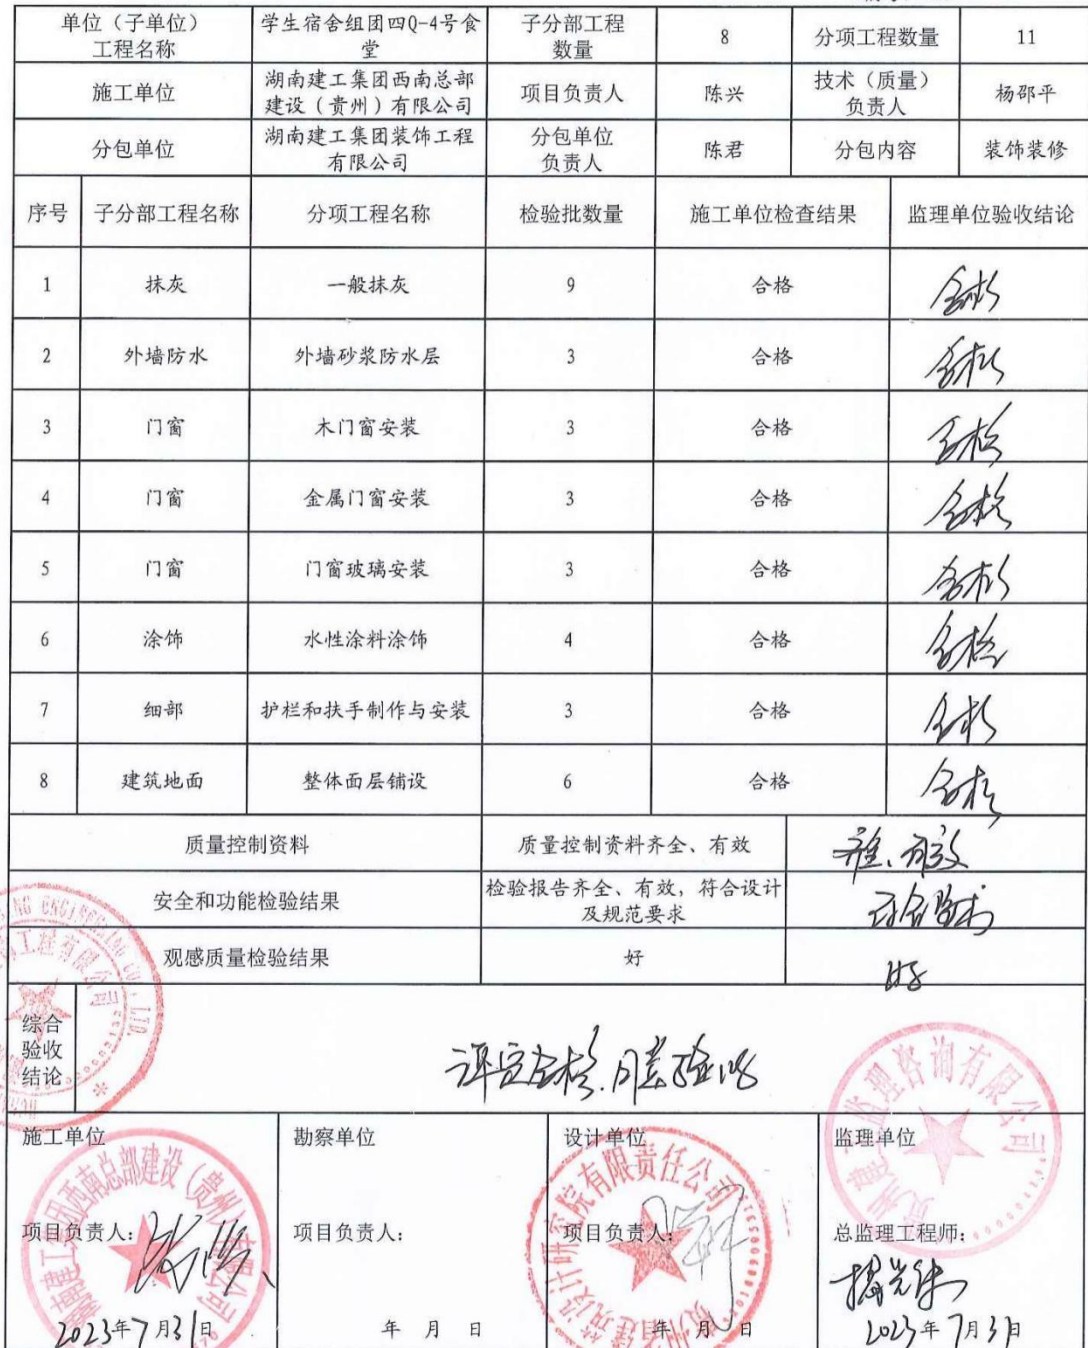 单位（子单位）
工程名称
学生宿舍组团四Q-4号食
堂
子分部工程
数量
8
分项工程数量
11
施工单位
湖南建工集团西南总部
建设（贵州）有限公司
项目负责人
陈兴
技术（质量）
负责人
杨邵平
分包单位
湖南建工集团装饰工程
有限公司
分包单位
负责人
陈君
分包内容
装饰装修
序号 子分部工程名称 分项工程名称 检验批数量 施工单位检查结果 监理单位验收结论
1 抹灰 一般抹灰 9 合格 合格
2 外墙防水 外墙砂浆防水层 3 合格 合格
3 门窗 木门窗安装 3 合格 合格
4 门窗 金属门窗安装 3 合格 合格
5 门窗 门窗玻璃安装 3 合格 合格
6 涂饰 水性涂料涂饰 4 合格 合格
7 细部 护栏和扶手制作与安装 3 合格 合格
8 建筑地面 整体面层铺设 6 合格 合格
质量控制资料 质量控制资料齐全、有效 齐全、有效
安全和功能检验结果
检验报告齐全、有效，符合设计
及规范要求
符合要求
观感质量检验结果 好 好
综合
验收
结论
评定合格,同意验收
施工单位 勘察单位 设计单位 监理单位
项目负责人: 项目负责人: 项目负责人: 总监理工程师:
2023年7月31日 年 月 日 年 月 日 2023年7月31日